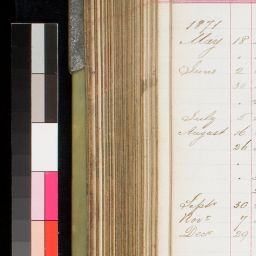 1871
May 18
"
June 2
30
"
July 5
August 16
26
"
"
Sept 30
Nov 7
Dec 29